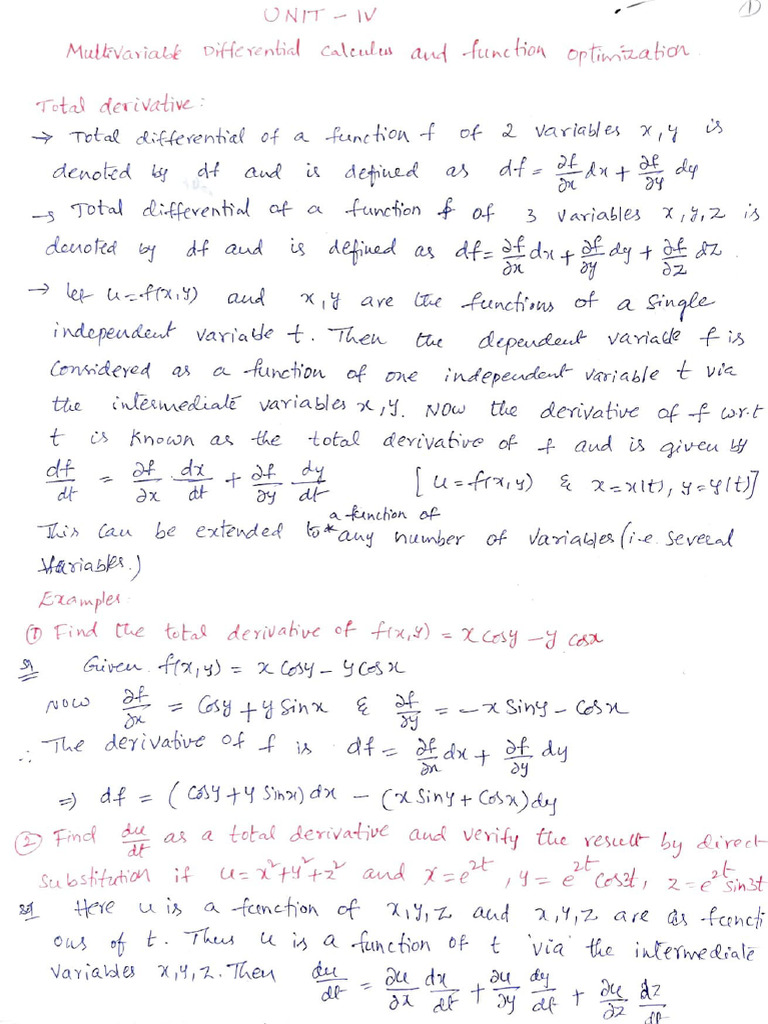 ①
UNIT - IV
Multivariable Differential calculus and function optimization.
Total derivative:
→ Total differential of a function f of 2 variables x, y is
denoted by df and is defined as df = ∂f/∂x dx + ∂f/∂y dy
→ Total differential of a function f of 3 variables x, y, z is
denoted by df and is defined as df = ∂f/∂x dx + ∂f/∂y dy + ∂f/∂z dz.
→ let u=f(x,y) and x, y are the functions of a single
independent variable t. Then the dependent variable f is
considered as a function of one independent variable t via
the intermediate variables x, y. Now the derivative of f w.r.t
t is known as the total derivative of f and is given by
df/dt = ∂f/∂x . dx/dt + ∂f/∂y . dy/dt [u=f(x,y) & x=x(t), y=y(t)]
a function of
This can be extended to * any number of variables (i.e. several
variables.)
Examples
① Find the total derivative of f(x,y) = x cosy - y cosx
Sol Given f(x,y) = x cosy - y cosx
Now ∂f/∂x = cosy + y sinx & ∂f/∂y = -x siny - cosx
∴ The derivative of f is df = ∂f/∂x dx + ∂f/∂y dy
⇒ df = (cosy + y sinx) dx - (x siny + cosx) dy
② Find du/dt as a total derivative and verify the result by direct
substitution if u = x²+y²+z² and x = e^2t, y = e^2t cos3t, z = e^2t sin3t
Sol Here u is a function of x, y, z and x, y, z are as functi
ons of t. Thus u is a function of t 'via' the intermediate
variables x, y, z. Then du/dt = ∂u/∂x dx/dt + ∂u/∂y dy/dt + ∂u/∂z dz/dt